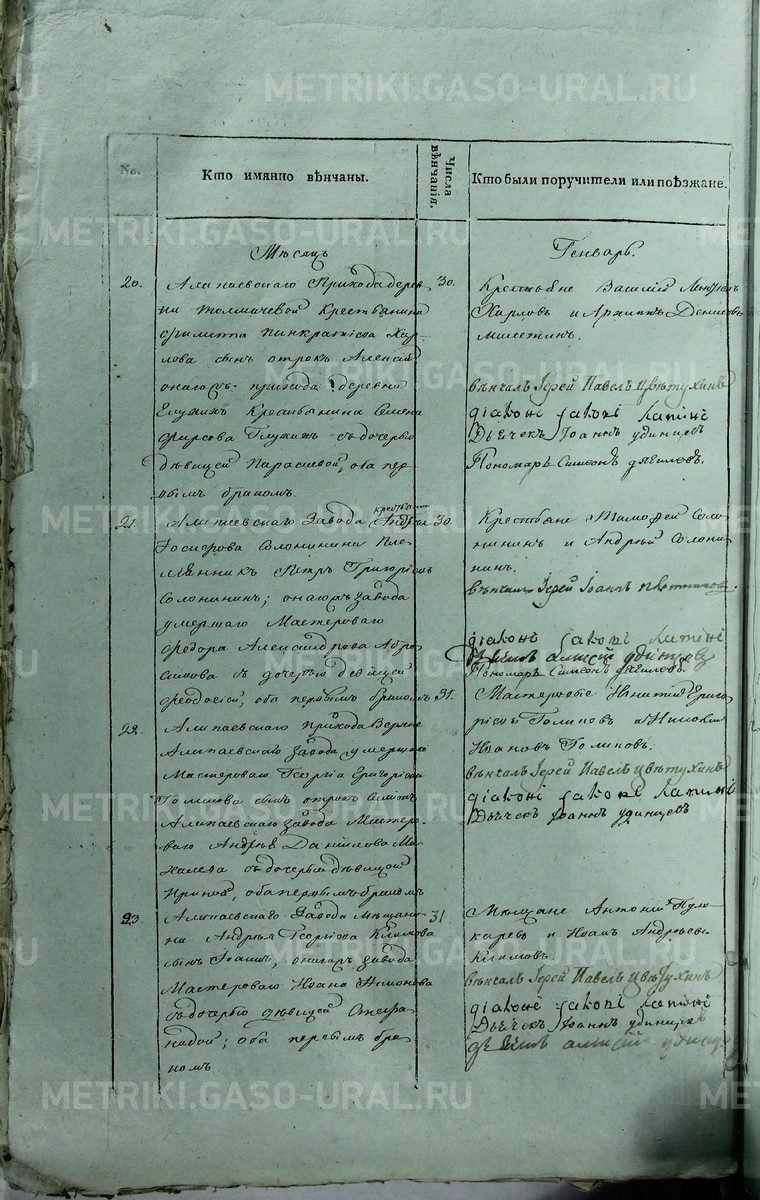 No.
Кто имянно вѣнчаны.
Числа вѣнчанія.
Кто были поручители или поѣзжане.
Мѣсяцъ
Генварь.
20.
Алапаевскаго Прихода дерев
ни Толмачевой Крестьянина
Филиппа Панкратьева Хар
лова сынъ отрокъ Алексій
онагожъ прихода деревни
Глухихъ Крестьянина Семена
Фирсова Глухихъ съ дочерью
дѣвицей Параскевой, оба пер
вымъ бракомъ.
30.
Крестьяне Василій
Харловъ и
вѣнчалъ Іерей Павелъ Цвѣтухинъ
діаконъ Іаковъ
Дьячекъ Іоаннъ Удинцевъ
Пономарь Симеонъ
21.
Алапаевскаго Завода крестьян. Андрея
Солонинина пле
мянникъ Петръ Григорьевъ
Солонининъ; онагожъ завода
умершаго Мастероваго
Федора Александрова Абро
симова съ дочерью дѣвицей
Феодосіей, оба первымъ бракомъ
30.
Крестьяне Тимофей Соло
нининъ и Андрей Солони
нинъ.
вѣнчалъ Іерей Іоаннъ
діаконъ Іаковъ
Пономарь Симеонъ
22.
Алапаевскаго прихода Верхне
Алапаевскаго завода умершаго
Мастероваго Георгія Григорьева
Голикова сынъ отрокъ
Алапаевскаго завода Мастеро
ваго Андрея Данилова Ми
халева съ дочерью дѣвицей
Ириной, оба первымъ бракомъ
31.
Мастеровые Игнатій Григо
рьевъ Голиковъ и
Ивановъ Голиковъ.
вѣнчалъ Іерей Павелъ Цвѣтухинъ
діаконъ Іаковъ
Дьячекъ Іоаннъ Удинцевъ
23.
Алапаевскаго Завода Мѣщани
на Андрея Георгіева Климова
сынъ Іоаннъ, онагожъ завода
Мастероваго Ивана
съ дочерью дѣвицей Стефа
нидой; оба первымъ бра
комъ
31
Мѣщане Антоній Пуш
каревъ и Иванъ Андреевъ
Климовъ.
вѣнчалъ Іерей Павелъ Цвѣтухинъ
діаконъ Іаковъ
Дьячекъ Іоаннъ Удинцевъ
METRIKI.GASO-URAL.RU